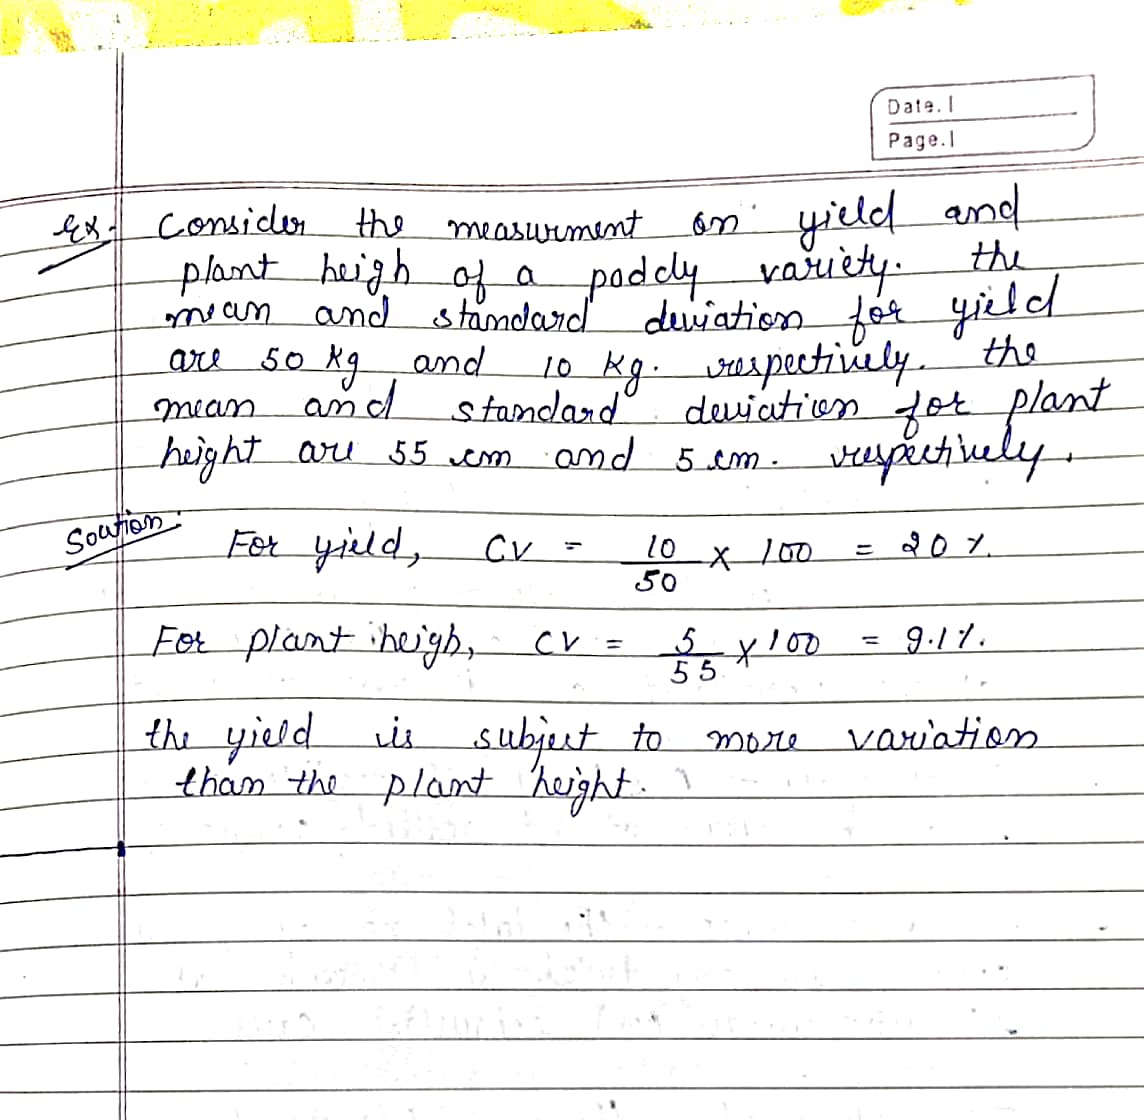 Date.
Page.
Ex. Consider the measurment on yield and
plant heigh of a paddy variety. the
mean and standard deviation for yield
are 50 kg and 10 kg. respectively. the
mean and standard deviation for plant
height are 55 cm and 5 cm. respectively.
Soution:
For yield, CV = 10/50 x 100 = 20 %.
For plant heigh, CV = 5/55 x 100 = 9.1%.
the yield is subject to more variation
than the plant height.